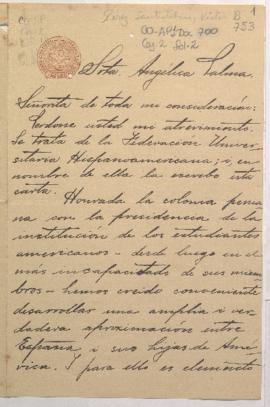 B. 1
753
00-APJ Doc. 700
Caj-2 Fol-2
Srta. Angélica Palma.
Señorita de toda mi consideración:
Perdone usted mi atrevimiento.
Se trata de la Federación Univer-
sitaria Hispanoamericana; i, en
nombre de ella la escribo esta
carta.
Honrada la colonia perua
na con la presidencia de la
institución de los estudiantes
americanos - desde luego en el
mas incapacitado de sus miem
bros - hemos creido conveniente
desarrollar una amplia i ver-
dadera aproximación entre
España i sus hijas de Amé
rica. I para ello es elemento